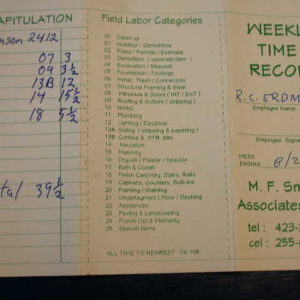 APITULATION
nson 2412
07 3
09 3½
13B 12
14 15½
18 5½
tal 39½
Field Labor Categories
00 Clean up
01 Mobilize / Demobilize
02 Plans / Permits / Estimate
03 Demolition (seperate item)
04 Excavation / Sitework
05 Foundation / Footings
06 Metal, Flash / Connectors
07 Structural Framing & Steel
08 Windows & Doors (INT / EXT)
09 Roofing & Outsm (stripping)
10 HVAC
11 Plumbing
12 Lighting / Electrical
13A Siding (stripping & papering)
13B Cornice & XTR trim
14 Insulation
15 Masonry
16 Drywall / Plaster / Speckle
17 Bath & Closet
18 Finish Carpentry, Stairs, Rails
19 Cabinets, Counters, Built-ins
20 Painting / Staining
21 Underlayment / Floor / Decking
22 Appliances
23 Paving & Landscaping
24 Punch List & Warranty
25 Special Items
ALL TIME TO NEAREST 1/4 HR.
WEEKL
TIME
RECO
R.C. ERDM
Employee Name
Employee Signa
WEEK
ENDING 8/2
M. F. Sm
Associates
tel : 423-
cel : 255-6